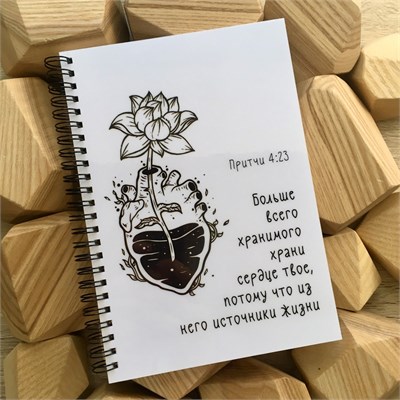 Притчи 4:23
Больше
всего
хранимого
храни
сердце твое,
потому что из
него источники жизни